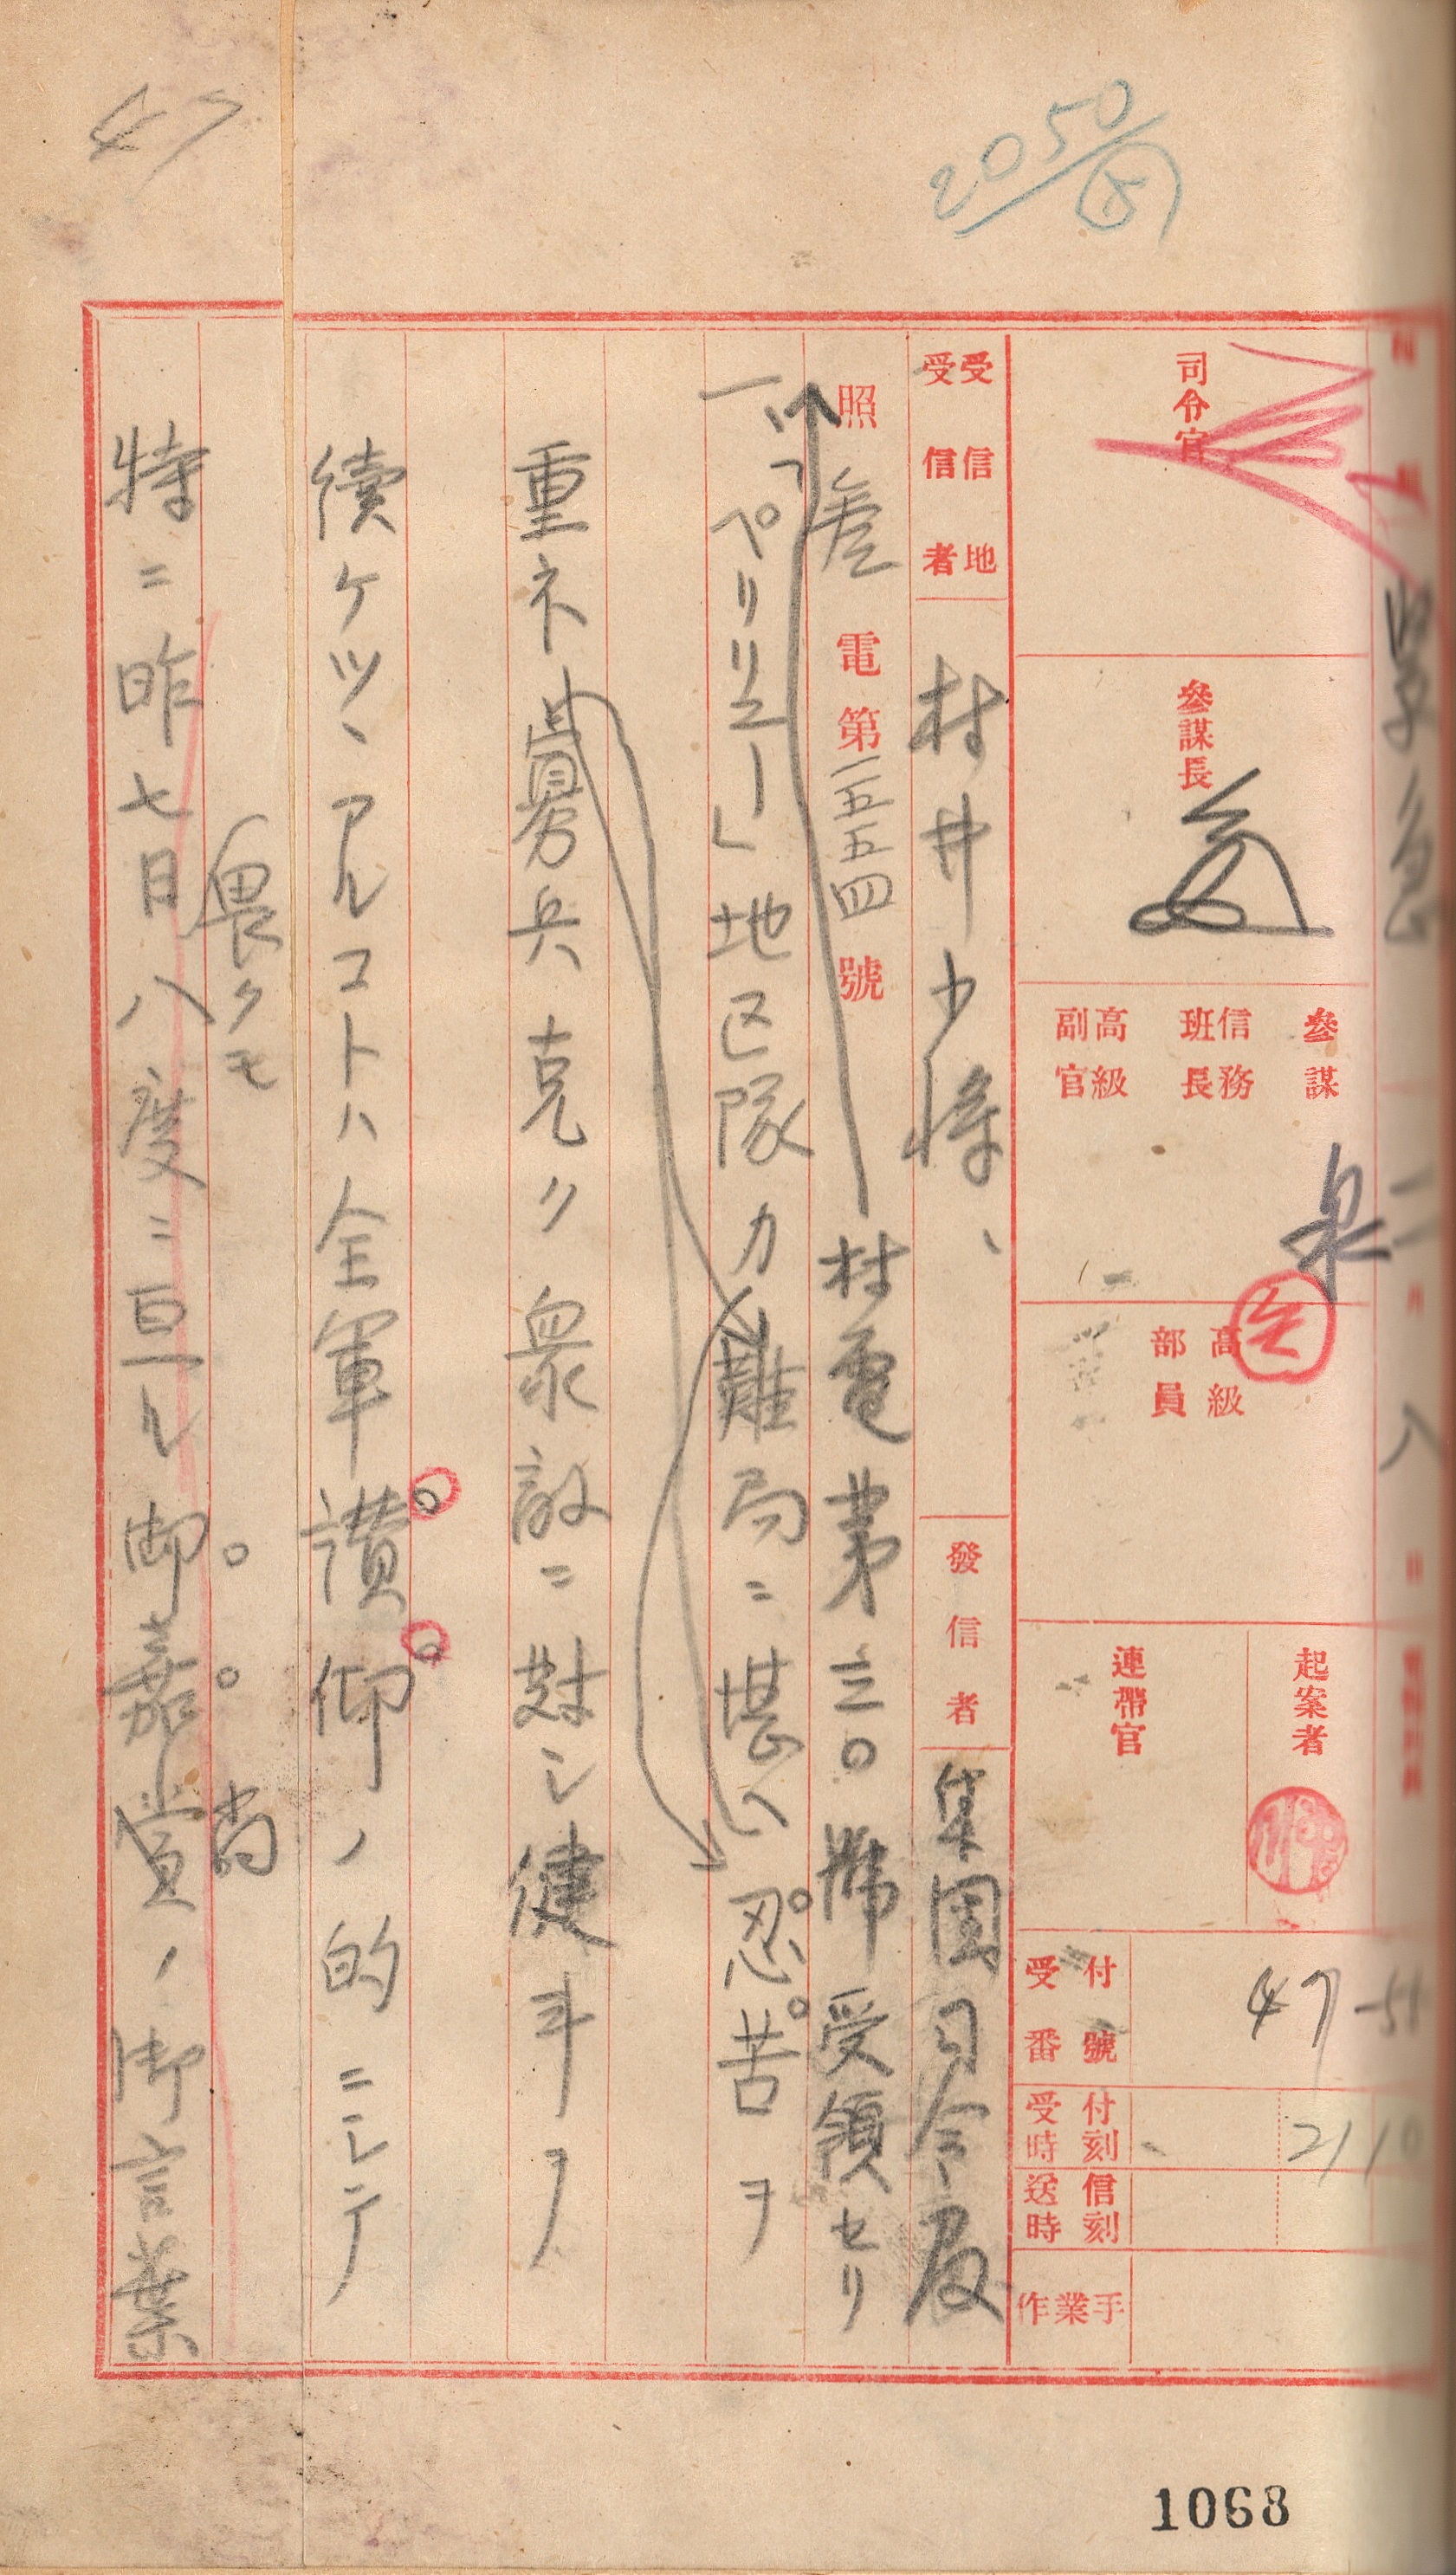 47
2050
緊急
二
八
司令官
參謀長
參謀
信務班長
高級副官
泉
高級部員
起案者
連帶官
付號受番
47-51
付刻受時
2110
信刻送時
作業手
受信地
受信者
村井少將、
發信者
集團司令官
照 参電第一五五四號
村電第三〇號受領セリ
一、「ペリリユー」地区隊カ難局ニ堪ヘ忍苦ヲ
重ネ寡兵克ク衆敵ニ対シ健斗ヲ
續ケツヽアルコトハ全軍讃仰ノ的ニシテ
畏クモ
尚
特ニ昨七日八度ニ亘ル御嘉賞ノ御言葉
1068